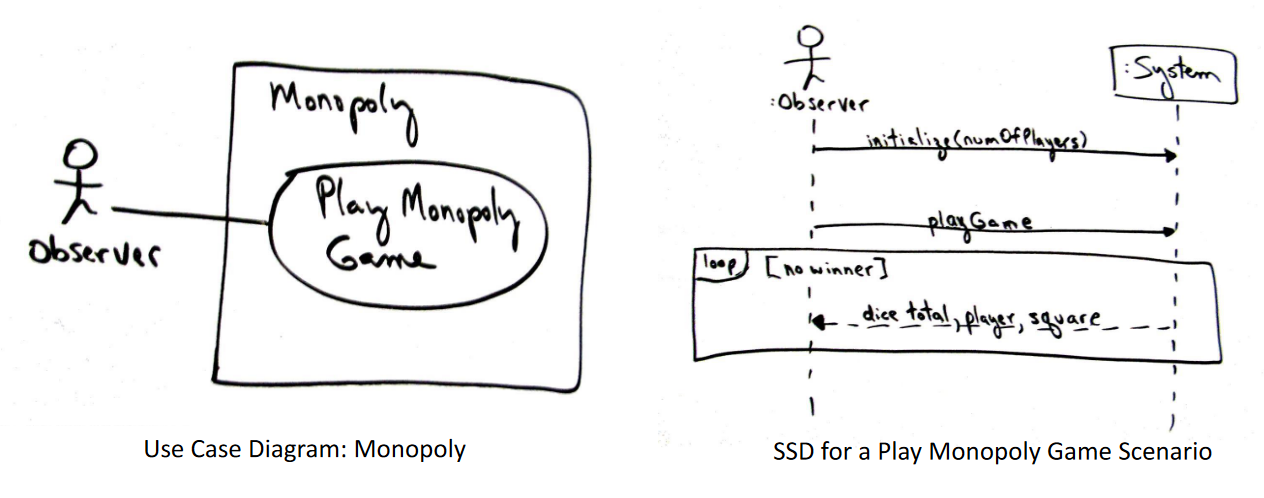 Monopoly
Play Monopoly
Game
Observer
Use Case Diagram: Monopoly
:Observer
:System
initialize(numOfPlayers)
playGame
loop
[no winner]
dice total, player, square
SSD for a Play Monopoly Game Scenario